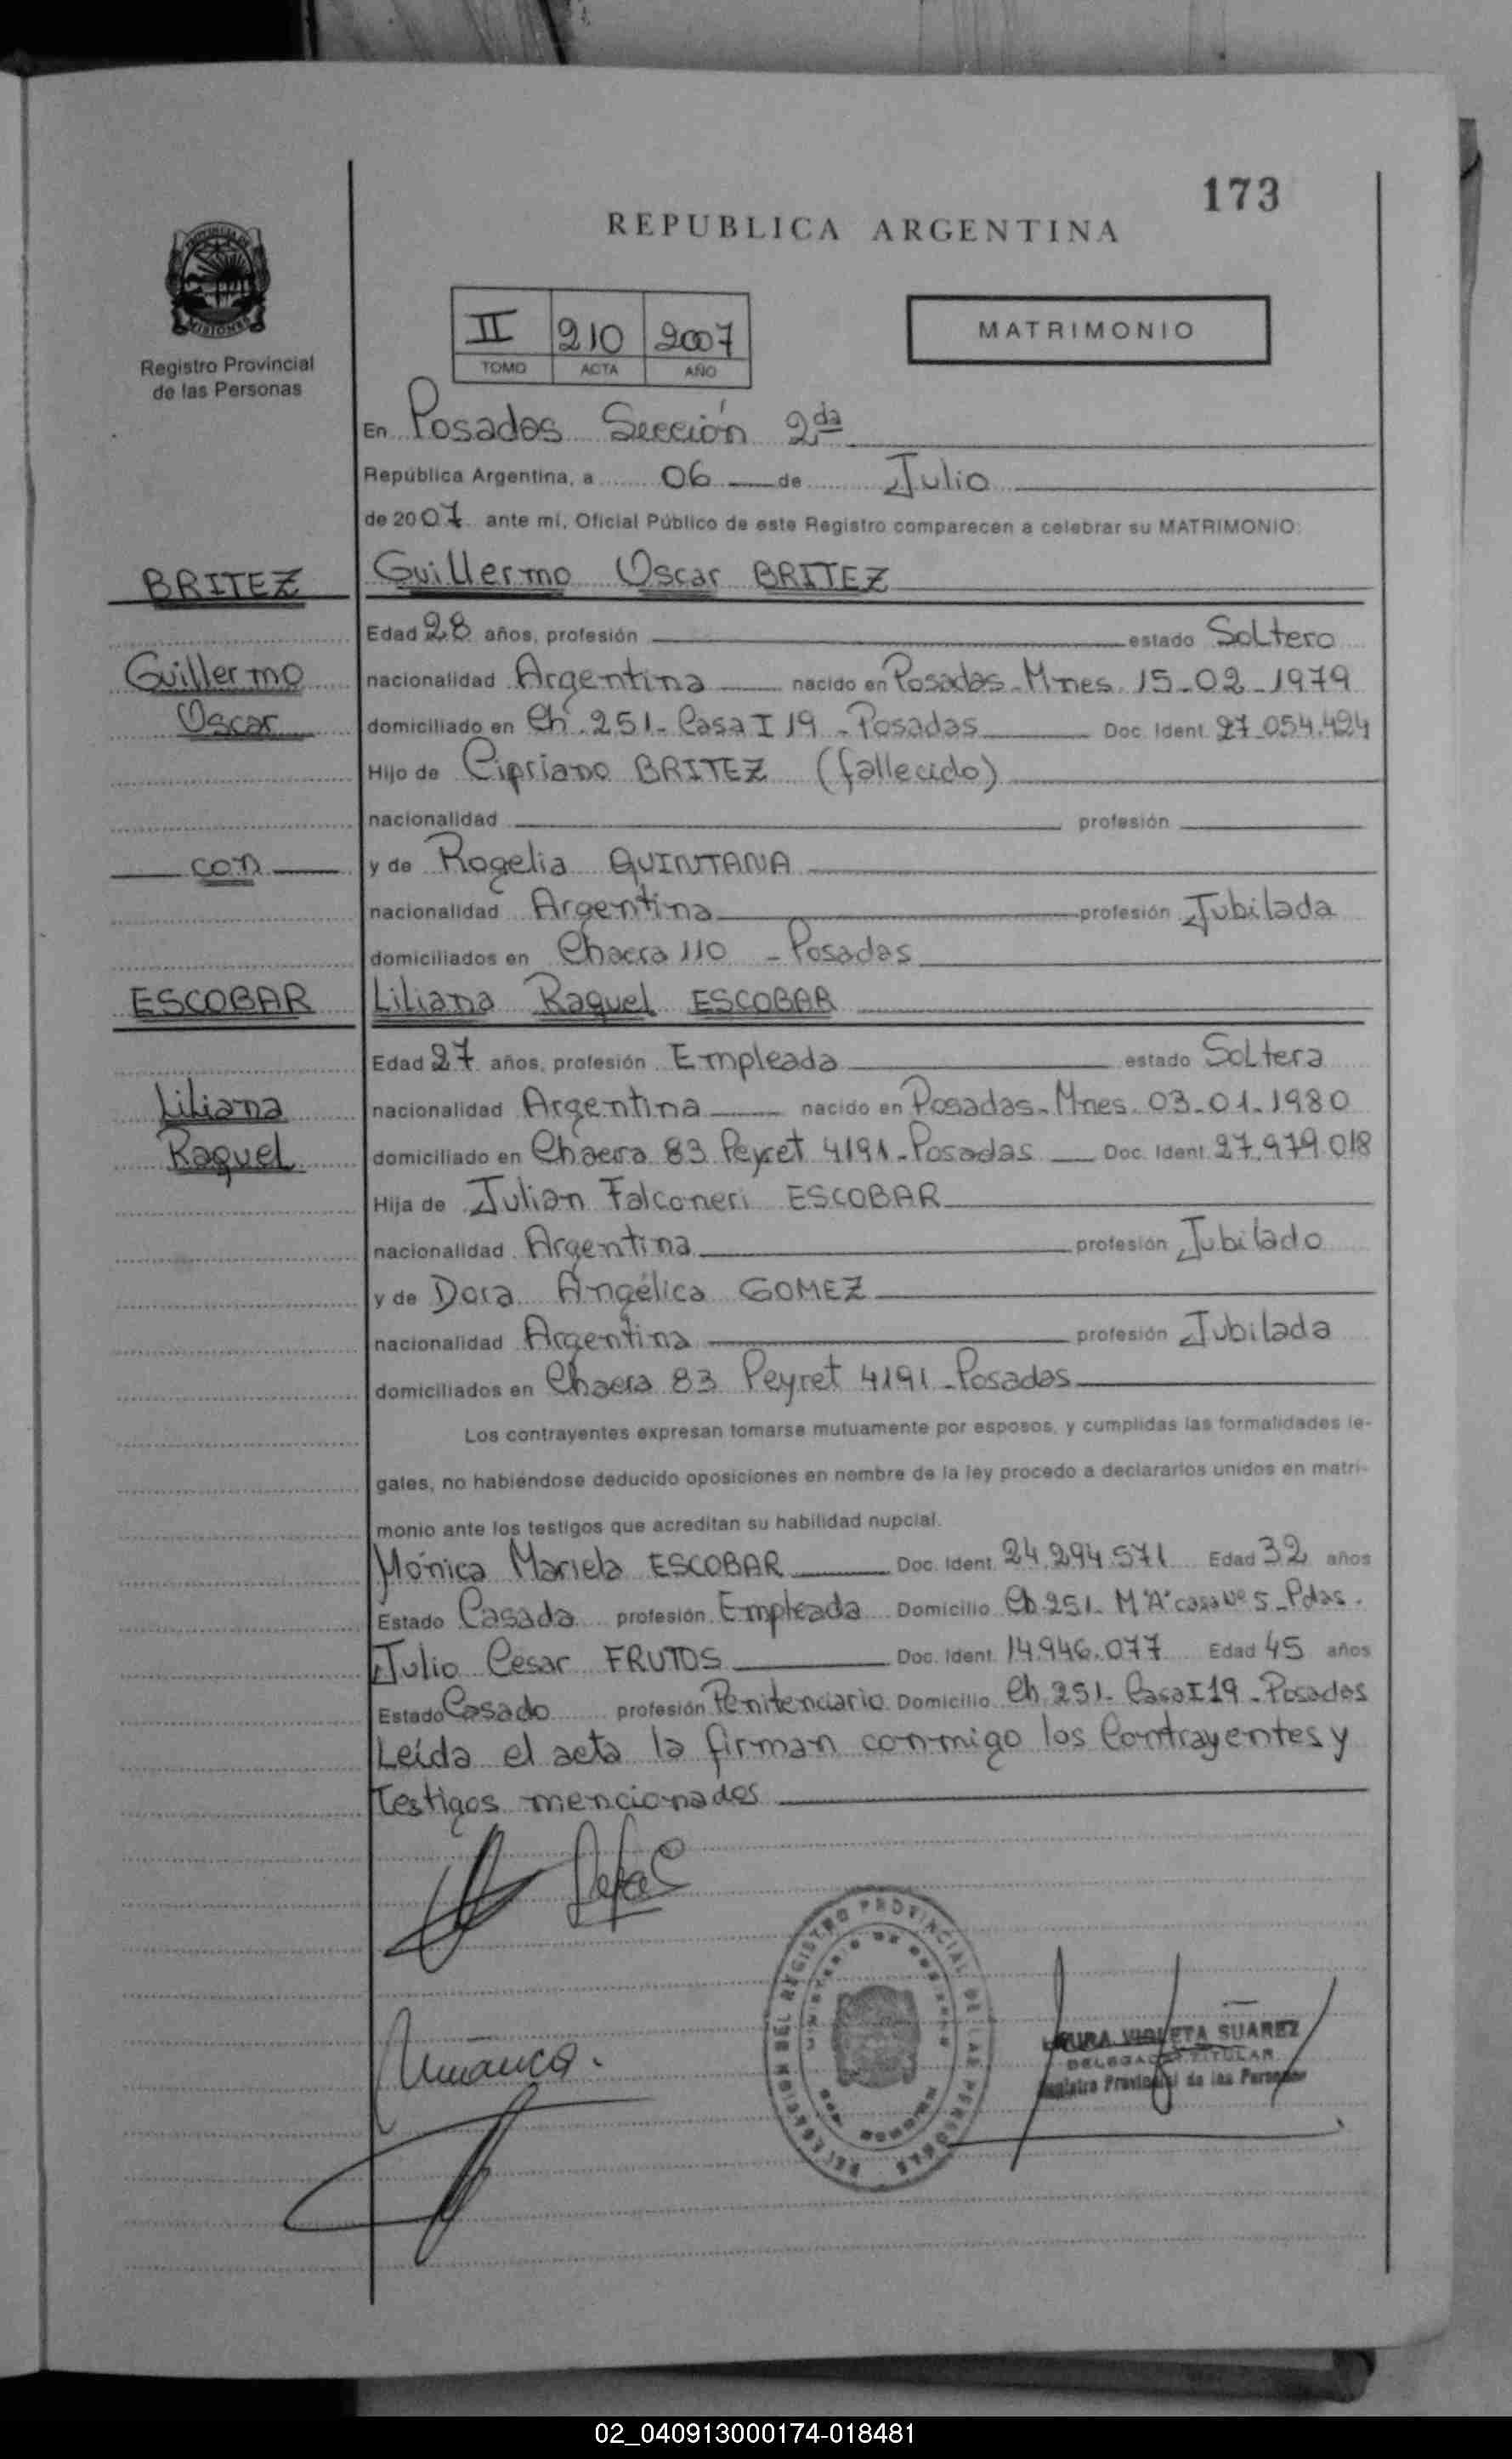 173
REPUBLICA ARGENTINA
PROVINCIA DE
MISIONES
Registro Provincial
de las Personas
II 210 2007
TOMO ACTA AÑO
MATRIMONIO
En Posadas Sección 2da
República Argentina, a 06 de Julio
de 2007 ante mí, Oficial Público de este Registro comparecen a celebrar su MATRIMONIO:
BRITEZ Guillermo Oscar BRITEZ
Edad 28 años, profesión estado Soltero
Guillermo nacionalidad Argentina nacido en Posadas - Mnes. 15-02-1979
Oscar domiciliado en Ch. 251- Casa I 19 - Posadas Doc. Ident. 27.054.424
Hijo de Cipriano BRITEZ (fallecido)
nacionalidad profesión
con y de Rogelia QUINTANA
nacionalidad Argentina profesión Jubilada
domiciliados en Chacra 110 - Posadas
ESCOBAR Liliana Raquel ESCOBAR
Edad 27 años, profesión Empleada estado Soltera
Liliana nacionalidad Argentina nacido en Posadas - Mnes. 03-01-1980
Raquel domiciliado en Chacra 83 Peyret 4191 - Posadas Doc. Ident. 27.979.018
Hija de Julian Falconeri ESCOBAR
nacionalidad Argentina profesión Jubilado
y de Dora Angélica GOMEZ
nacionalidad Argentina profesión Jubilada
domiciliados en Chacra 83 Peyret 4191 - Posadas
Los contrayentes expresan tomarse mutuamente por esposos, y cumplidas las formalidades le-
gales, no habiéndose deducido oposiciones en nombre de la ley procedo a declararlos unidos en matri-
monio ante los testigos que acreditan su habilidad nupcial.
Mónica Mariela ESCOBAR Doc. Ident. 24.294.571 Edad 32 años
Estado Casada profesión Empleada Domicilio Ch. 251- M "A" casa Nº 5 - Pdas.
Julio Cesar FRUTOS Doc. Ident. 14.946.077 Edad 45 años
Estado Casado profesión Penitenciario Domicilio Ch. 251- Casa I 19 - Posadas
Leída el acta la firman conmigo los Contrayentes y
Testigos mencionados
DELEGACION DEL REGISTRO PROVINCIAL DE LAS PERSONAS
LAURA VIOLETA SUAREZ
DELEGADA TITULAR
Registro Provincial de las Personas
02_040913000174-018481